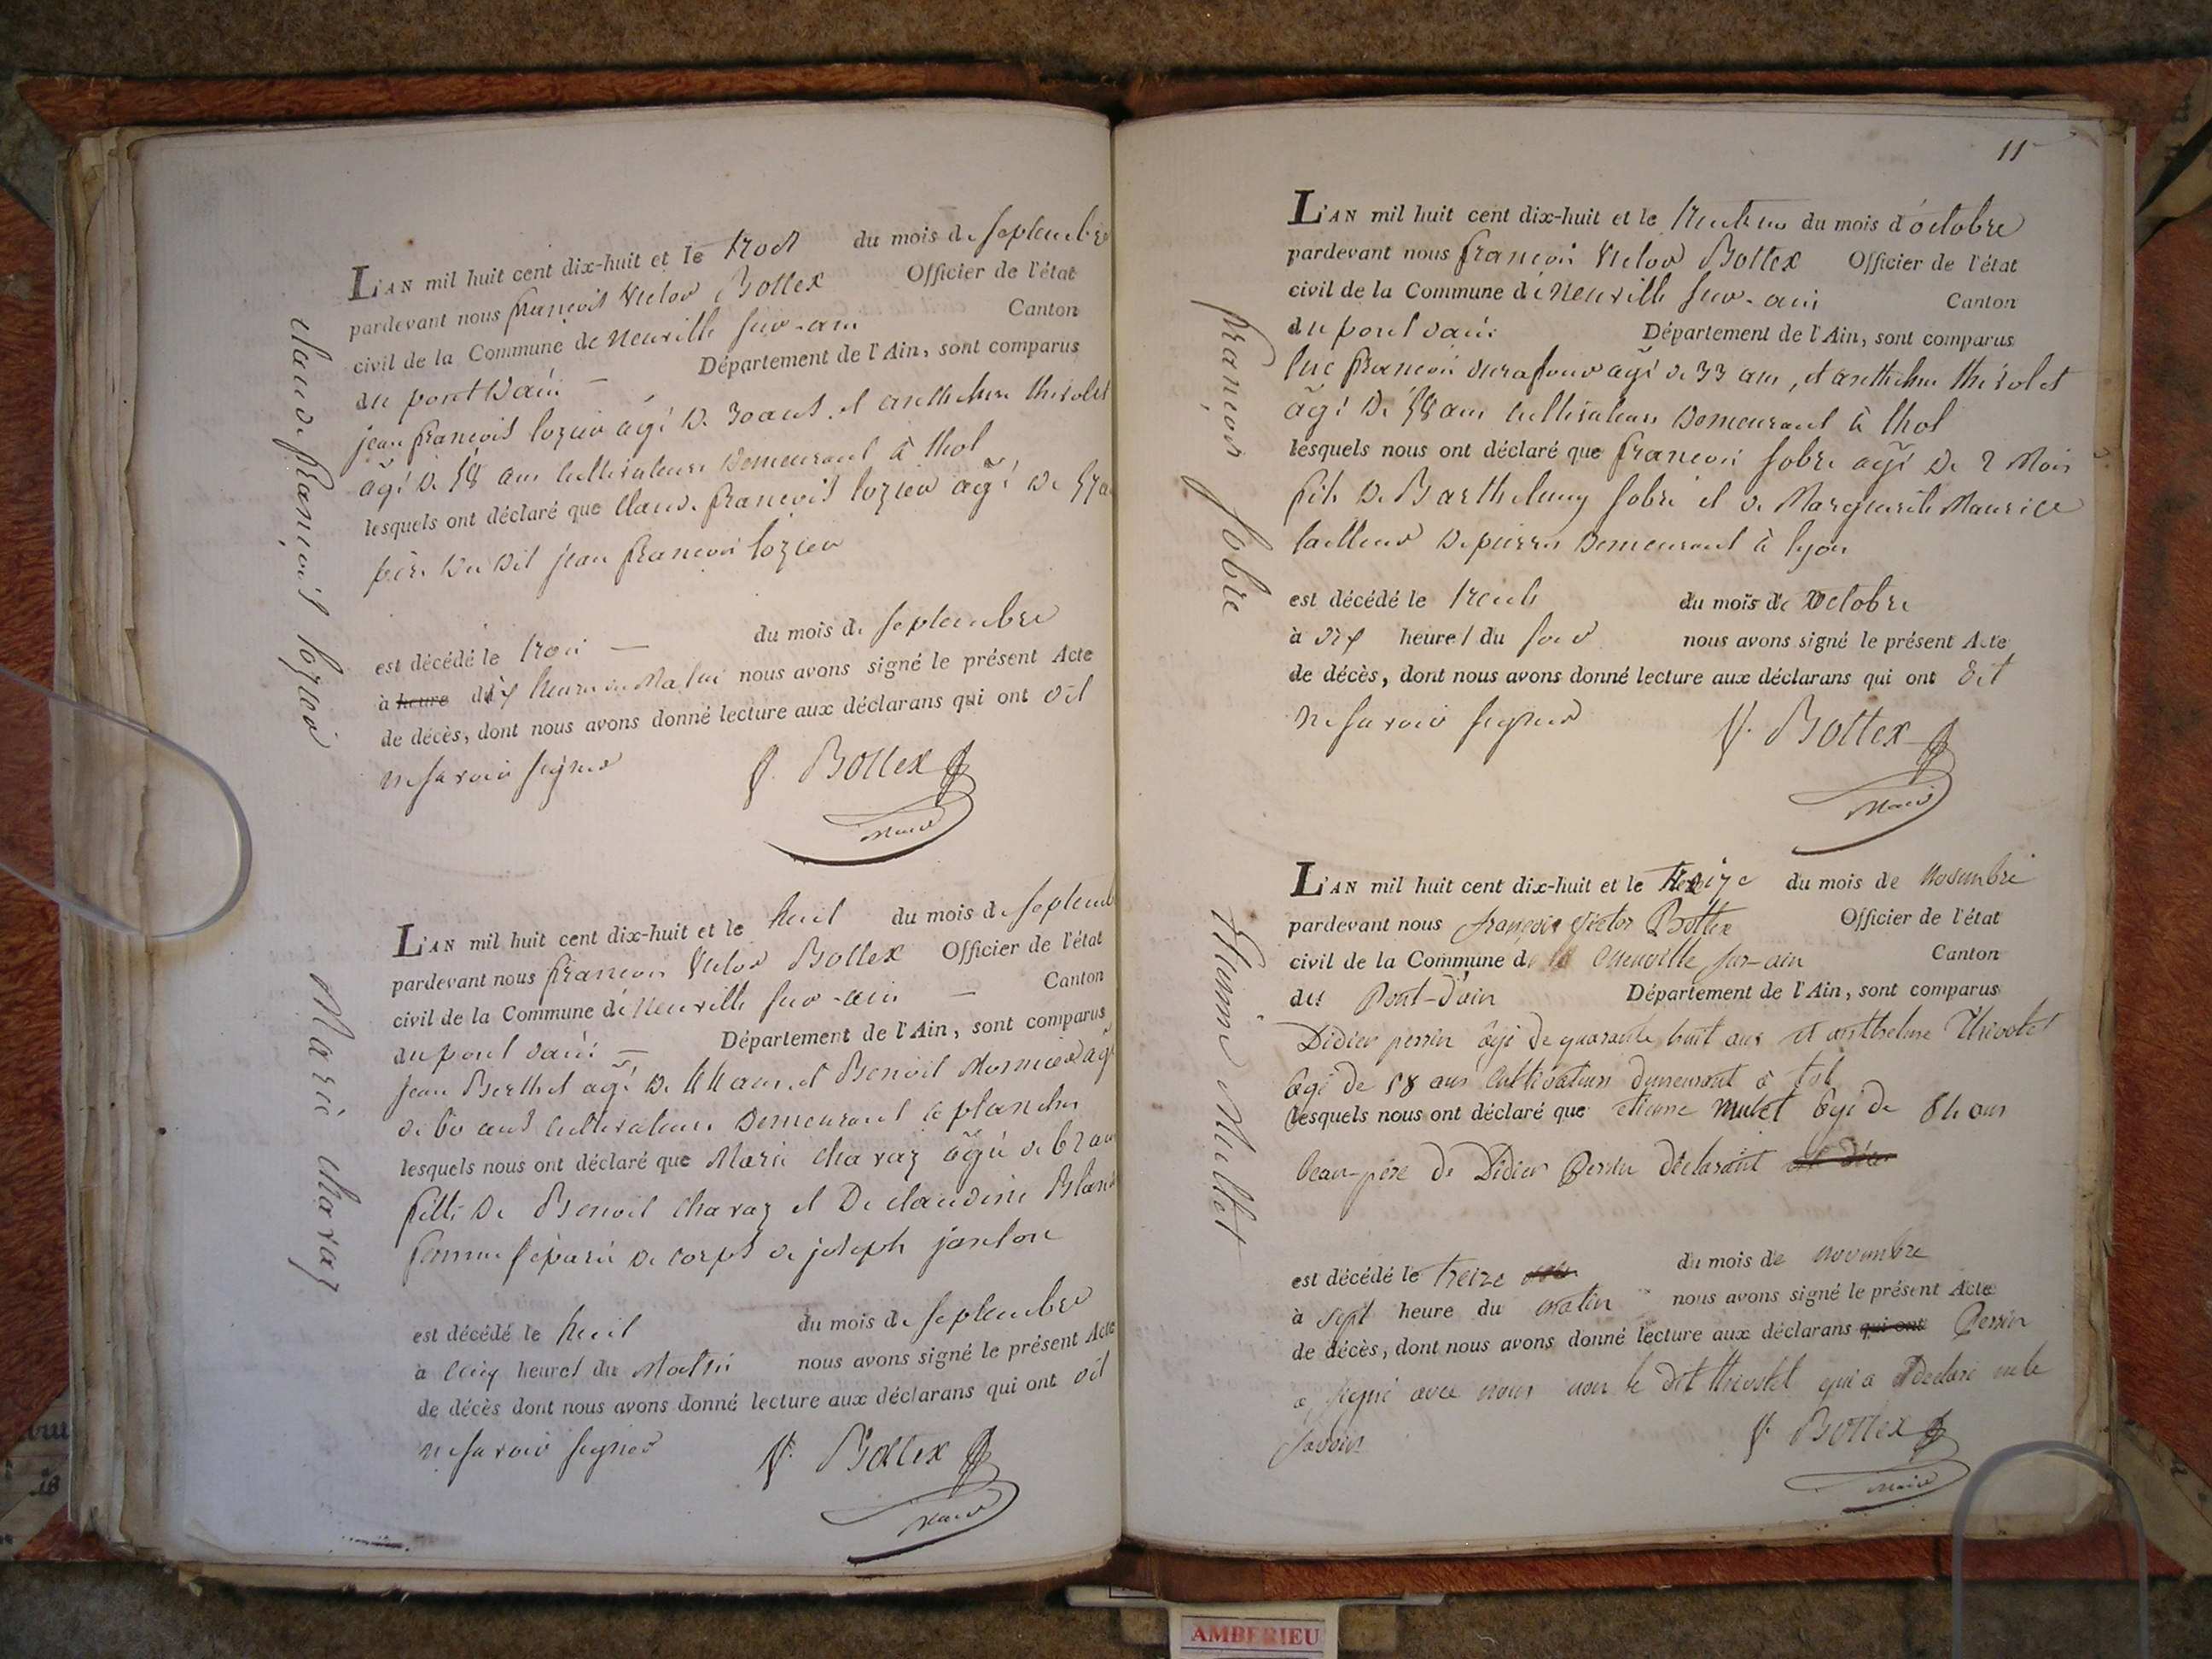 claude françois lozier
L'AN mil huit cent dix-huit et le trois du mois de septembre
pardevant nous françois Victor Bottex Officier de l'état
civil de la Commune de Neuville sur-ain Canton
du pont d'ain Département de l'Ain, sont comparus
jean françois lozier agé de 30 ans, et anthelme thevolet
agé de 58 ans cultivateurs demeurant à thol
lesquels ont déclaré que claude françois lozier agé de
père du dit jean françois lozier
est décédé le trois du mois de septembre
à heure dix heures du Matin nous avons signé le présent Acte
de décès, dont nous avons donné lecture aux déclarans qui ont dit
ne savoir signer V. Bottex
Maire
Marie charaz
L'AN mil huit cent dix-huit et le huit du mois de septemb
pardevant nous françois Victor Bottex Officier de l'état
civil de la Commune de Neuville sur-ain Canton
du pont d'ain Département de l'Ain, sont comparus
jean Berthet agé de 44 ans et Benoit Mornieu agé
de 60 ans cultivateurs demeurant à planches
lesquels nous ont déclaré que Marie charaz agée de 62 ans
fille de Benoit charaz et De claudine Blanc
femme séparée de corps de joseph janton
est décédé le huit du mois de septembre
à cinq heures du Matin nous avons signé le présent Acte
de décès dont nous avons donné lecture aux déclarans qui ont dit
ne savoir signer V. Bottex
Maire
11
françois fobre
L'AN mil huit cent dix-huit et le trente un du mois d'octobre
pardevant nous françois Victor Bottex Officier de l'état
civil de la Commune de Neuville sur-ain Canton
du pont d'ain Département de l'Ain, sont comparus
luc françois durafour agé de 33 ans, et anthelme thevolet
agé de 58 ans cultivateurs demeurant à thol
lesquels nous ont déclaré que françois fobre agé de 2 Mois
fils de Barthelemy fobre et de Marguerite Maurice
tailleur de pierres demeurant à lyon
est décédé le trente du mois de octobre
à dix heures du soir nous avons signé le présent Acte
de décès, dont nous avons donné lecture aux déclarans qui ont dit
ne savoir signer V. Bottex
Maire
Etienne Mullet
L'AN mil huit cent dix-huit et le treize du mois de Novembre
pardevant nous françois Victor Bottex Officier de l'état
civil de la Commune de Neuville sur-ain Canton
du Pont-d'ain Département de l'Ain, sont comparus
Didier perrin âgé de quarante huit ans et anthelme Thevolet
âgé de 58 ans cultivateurs demeurant à tol
lesquels nous ont déclaré que etienne mulet âgé de 84 ans
beau-père de Didier Perrin déclarant
est décédé le treize du mois de novembre
à sept heure du matin nous avons signé le présent Acte
de décès, dont nous avons donné lecture aux déclarans qui ont Perrin
a signé avec nous non le dit thevolet qui a déclaré ne le
savoir V. Bottex
Maire
AMBERIEU